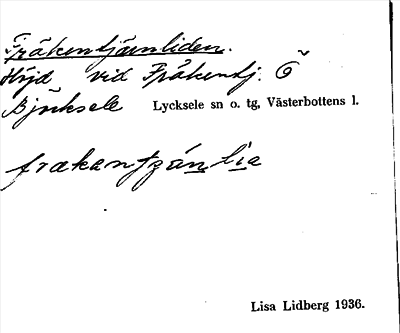 Fräkentjärnliden.
Höjd vid Fräkentj. Ö
Björksele Lycksele sn o. tg, Västerbottens l.
frakantjánlia
Lisa Lidberg 1936.